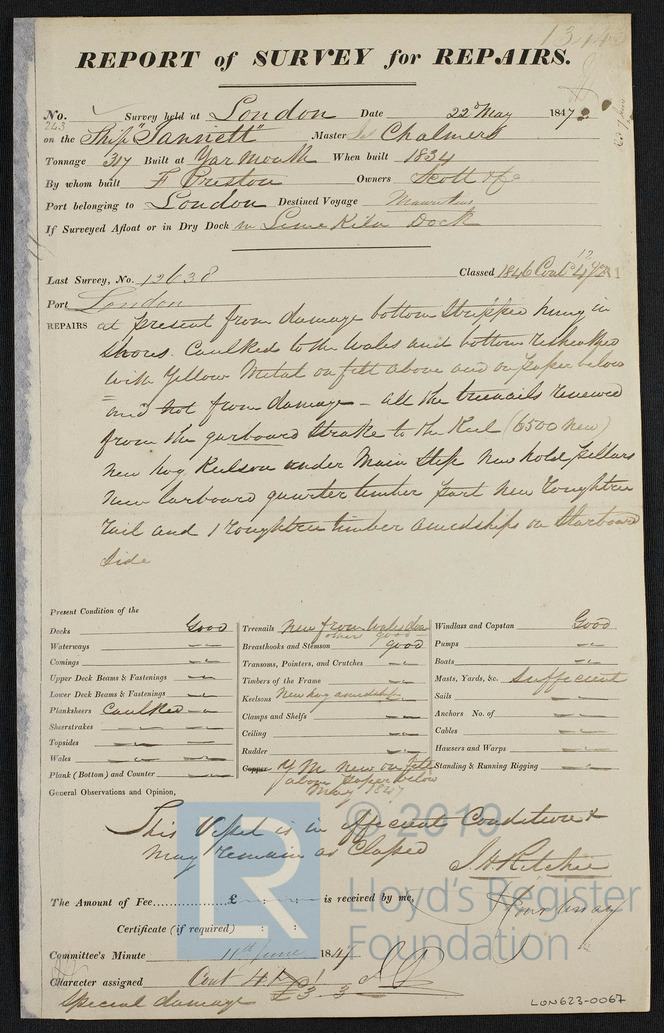 REPORT of SURVEY for REPAIRS.
No. 243 Survey held at London Date 22nd May 1847
on the Ship "Jannett" Master Js Chalmers
Tonnage 317 Built at Yarmouth When built 1834
By whom built F Preston Owners Scott & Co
Port belonging to London Destined Voyage Mauritius
If Surveyed Afloat or in Dry Dock in Lime Kiln Dock
Last Survey, No. 12638 Classed 1846 Contd
Port London
REPAIRS at present from damage bottom stripped hung in
shores. Caulked to the Wales and bottom resheathed
with Yellow Metal on felt above and on paper below
and not from damage - all the treenails renewed
from the garboard strake to the Keel (6500 new)
new hog Keelson under Main Step New hold pillars
New larboard quarter timber part new roughtree
rail and 1 roughtree timber amidships on Starboard
Side
Present Condition of the
Decks Good
Waterways
Comings
Upper Deck Beams & Fastenings
Lower Deck Beams & Fastenings
Planksheers Caulked
Sheerstrakes
Topsides
Wales
Plank (Bottom) and Counter
Treenails New from Wales down
other good
Breasthooks and Stemson good
Transoms, Pointers, and Crutches
Timbers of the Frame
Keelsons New hog amidships
Clamps and Shelfs
Ceiling
Rudder
Copper Y M New on felt
above paper below
May 1847
Windlass and Capstan Good
Pumps
Boats
Masts, Yards, &c. Sufficient
Sails
Anchors No. of
Cables
Hawsers and Warps
Standing & Running Rigging
General Observations and Opinion,
This Vessel is in efficient Condition &
may remain as Classed
J. H. Ritchie
The Amount of Fee £ is received by me,
Certificate (if required)
Committee's Minute 11th June 1847
Character assigned Cont
special damage £3 3
LON623-0067
© 2019
LR
Lloyd's Register
Foundation